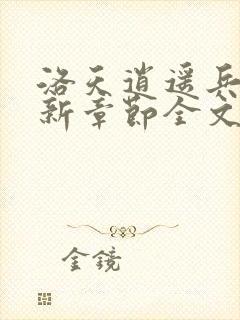 洛天逍遥兵
新章节全文
金镜